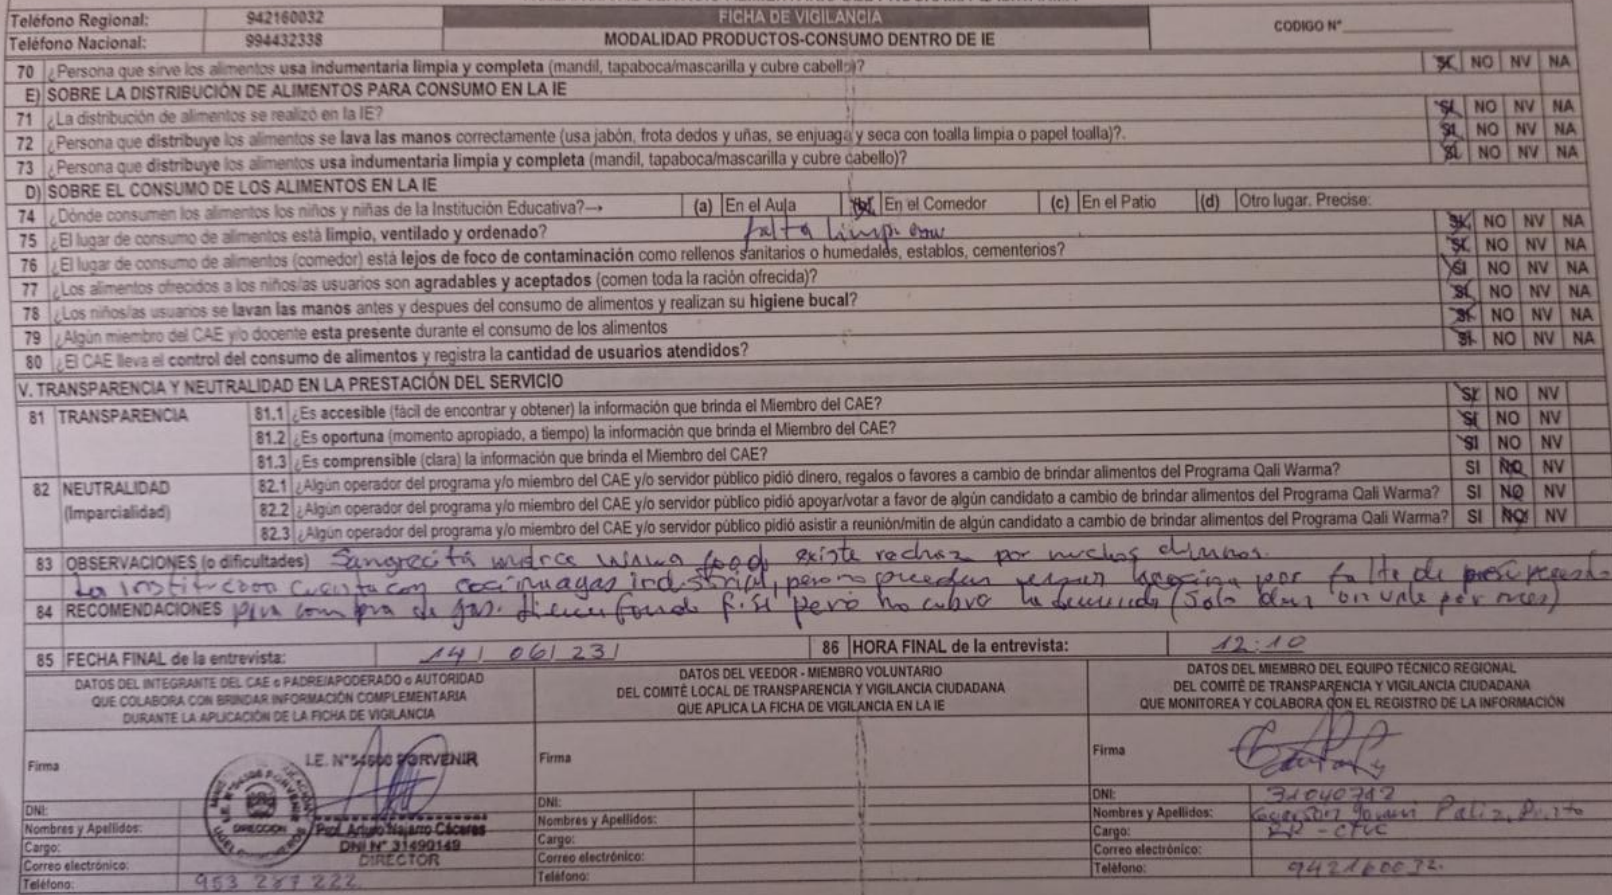 Teléfono Regional: 942160032 FICHA DE VIGILANCIA CODIGO N°
Teléfono Nacional: 994432338 MODALIDAD PRODUCTOS-CONSUMO DENTRO DE IE
70 ¿Persona que sirve los alimentos usa indumentaria limpia y completa (mandil, tapaboca/mascarilla y cubre cabello)? SI NO NV NA
E) SOBRE LA DISTRIBUCIÓN DE ALIMENTOS PARA CONSUMO EN LA IE
71 ¿La distribución de alimentos se realizó en la IE? SI NO NV NA
72 ¿Persona que distribuye los alimentos se lava las manos correctamente (usa jabón, frota dedos y uñas, se enjuaga y seca con toalla limpia o papel toalla)?. SI NO NV NA
73 ¿Persona que distribuye los alimentos usa indumentaria limpia y completa (mandil, tapaboca/mascarilla y cubre cabello)? SI NO NV NA
D) SOBRE EL CONSUMO DE LOS ALIMENTOS EN LA IE
74 ¿Dónde consumen los alimentos los niños y niñas de la Institución Educativa?→ (a) En el Aula (b) En el Comedor (c) En el Patio (d) Otro lugar. Precise:
75 ¿El lugar de consumo de alimentos está limpio, ventilado y ordenado? falta SI NO NV NA
76 ¿El lugar de consumo de alimentos (comedor) está lejos de foco de contaminación como rellenos sanitarios o humedales, establos, cementerios? SI NO NV NA
77 ¿Los alimentos ofrecidos a los niños/as usuarios son agradables y aceptados (comen toda la ración ofrecida)? SI NO NV NA
78 ¿Los niños/as usuarios se lavan las manos antes y despues del consumo de alimentos y realizan su higiene bucal? SI NO NV NA
79 ¿Algún miembro del CAE y/o docente esta presente durante el consumo de los alimentos SI NO NV NA
80 ¿El CAE lleva el control del consumo de alimentos y registra la cantidad de usuarios atendidos? SI NO NV NA
V. TRANSPARENCIA Y NEUTRALIDAD EN LA PRESTACIÓN DEL SERVICIO
81 TRANSPARENCIA 81.1 ¿Es accesible (fácil de encontrar y obtener) la información que brinda el Miembro del CAE? SI NO NV
81.2 ¿Es oportuna (momento apropiado, a tiempo) la información que brinda el Miembro del CAE? SI NO NV
81.3 ¿Es comprensible (clara) la información que brinda el Miembro del CAE? SI NO NV
82 NEUTRALIDAD 82.1 ¿Algún operador del programa y/o miembro del CAE y/o servidor público pidió dinero, regalos o favores a cambio de brindar alimentos del Programa Qali Warma? SI NO NV
(Imparcialidad) 82.2 ¿Algún operador del programa y/o miembro del CAE y/o servidor público pidió apoyar/votar a favor de algún candidato a cambio de brindar alimentos del Programa Qali Warma? SI NO NV
82.3 ¿Algún operador del programa y/o miembro del CAE y/o servidor público pidió asistir a reunión/mitin de algún candidato a cambio de brindar alimentos del Programa Qali Warma? SI NO NV
83 OBSERVACIONES (o dificultades) Sangrecita food existe rechazo por muchos alumnos.
La institucion cuenta con industrial, pero no pueden por falta de
84 RECOMENDACIONES para compra de gas. pero no cubre la (solo dan un vale por mes)
85 FECHA FINAL de la entrevista: 14/ 06/ 23/ 86 HORA FINAL de la entrevista: 12:10
DATOS DEL INTEGRANTE DEL CAE o PADRE/APODERADO o AUTORIDAD
QUE COLABORA CON BRINDAR INFORMACIÓN COMPLEMENTARIA
DURANTE LA APLICACIÓN DE LA FICHA DE VIGILANCIA
DATOS DEL VEEDOR - MIEMBRO VOLUNTARIO
DEL COMITÉ LOCAL DE TRANSPARENCIA Y VIGILANCIA CIUDADANA
QUE APLICA LA FICHA DE VIGILANCIA EN LA IE
DATOS DEL MIEMBRO DEL EQUIPO TÉCNICO REGIONAL
DEL COMITÉ DE TRANSPARENCIA Y VIGILANCIA CIUDADANA
QUE MONITOREA Y COLABORA CON EL REGISTRO DE LA INFORMACIÓN
Firma I.E. N° PORVENIR
DIRECCION
DNI:
Nombres y Apellidos: Prof. Arturo Najarro Cáceres
Cargo: DNI N° 31490149
Correo electrónico: DIRECTOR
Teléfono: 953 287 222
Firma
DNI:
Nombres y Apellidos:
Cargo:
Correo electrónico:
Teléfono:
Firma
DNI: 31040712
Nombres y Apellidos:
Cargo: - CTVC
Correo electrónico:
Teléfono: 942160032.